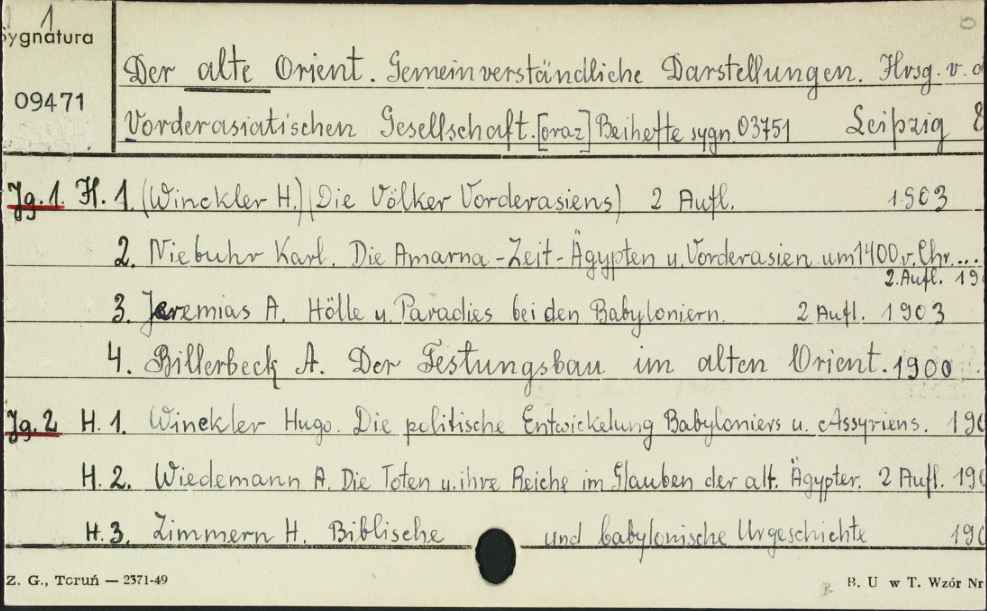 1
Sygnatura
09471
Der alte Orient. Gemeinverständliche Darstellungen. Hrsg. v. d
Vorderasiatischen Gesellschaft. [oraz] Beihefte sygn. 03751 Leipzig 8
Jg. 1. H. 1. (Winckler H.) (Die Völker Vorderasiens) 2 Aufl. 1903
2. Niebuhr Karl. Die Amarna-Zeit-Ägypten u. Vorderasien um 1400 v. Chr....
2. Aufl. 19
3. Jeremias A. Hölle u. Paradies bei den Babyloniern. 2 Aufl. 1903
4. Billerbeck A. Der Festungsbau im alten Orient. 1900
Jg. 2 H. 1. Winckler Hugo. Die politische Entwickelung Babyloniers u. Assyriens. 190
H. 2. Wiedemann A. Die Toten u. ihre Reiche im Glauben der alt. Ägypter. 2 Aufl. 190
H. 3. Zimmern H. Biblische und babylonische Urgeschichte 190
Z. G., Toruń — 2371-49 B. U w T. Wzór Nr